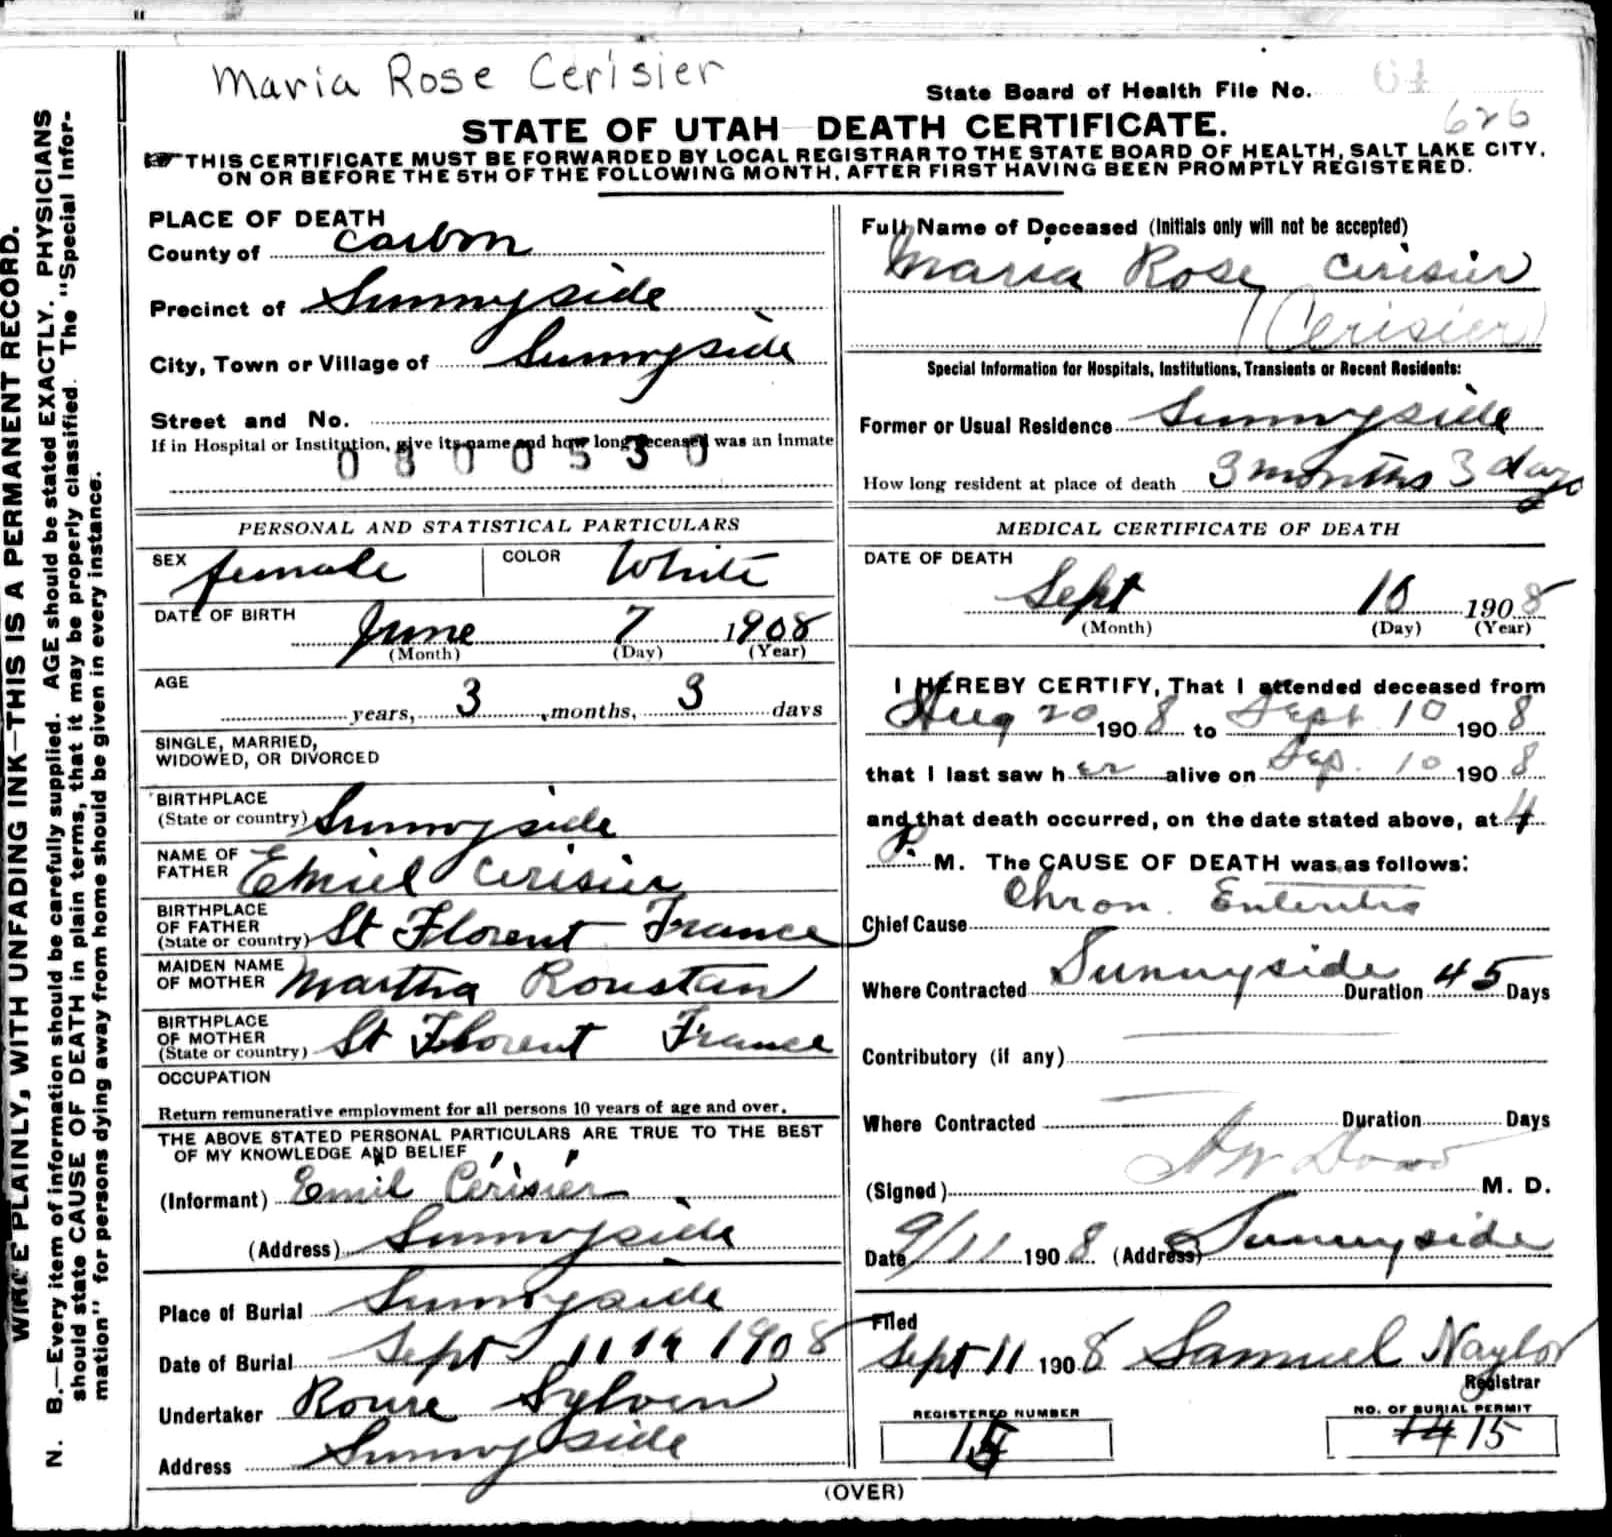 Maria Rose Cerisier
State Board of Health File No.
626
STATE OF UTAH DEATH CERTIFICATE.
THIS CERTIFICATE MUST BE FORWARDED BY LOCAL REGISTRAR TO THE STATE BOARD OF HEALTH, SALT LAKE CITY,
ON OR BEFORE THE 5TH OF THE FOLLOWING MONTH, AFTER FIRST HAVING BEEN PROMPTLY REGISTERED.
WRITE PLAINLY, WITH UNFADING INK—THIS IS A PERMANENT RECORD.
N. B.—Every item of information should be carefully supplied. AGE should be stated EXACTLY. PHYSICIANS
should state CAUSE OF DEATH in plain terms, that it may be properly classified. The "Special Infor-
mation" for persons dying away from home should be given in every instance.
PLACE OF DEATH
County of Carbon
Precinct of Sunnyside
City, Town or Village of Sunnyside
Street and No.
If in Hospital or Institution, give its name and how long deceased was an inmate
0800530
PERSONAL AND STATISTICAL PARTICULARS
SEX female COLOR White
DATE OF BIRTH
June 7 1908
(Month) (Day) (Year)
AGE
years, 3 months, 3 days
SINGLE, MARRIED,
WIDOWED, OR DIVORCED
BIRTHPLACE
(State or country) Sunnyside
NAME OF
FATHER Emiel Cerisier
BIRTHPLACE
OF FATHER
(State or country) St Florent France
MAIDEN NAME
OF MOTHER Martha Roustan
BIRTHPLACE
OF MOTHER
(State or country) St Florent France
OCCUPATION
Return remunerative employment for all persons 10 years of age and over.
THE ABOVE STATED PERSONAL PARTICULARS ARE TRUE TO THE BEST
OF MY KNOWLEDGE AND BELIEF
(Informant) Emil Cerisier
(Address) Sunnyside
Place of Burial Sunnyside
Date of Burial Sept 11 1908
Undertaker Roure Sylven
Address Sunnyside
Full Name of Deceased (Initials only will not be accepted)
Maria Rose Cerisier
(Cerisier)
Special Information for Hospitals, Institutions, Transients or Recent Residents:
Former or Usual Residence Sunnyside
How long resident at place of death 3 months 3 days
MEDICAL CERTIFICATE OF DEATH
DATE OF DEATH
Sept 10 1908
(Month) (Day) (Year)
I HEREBY CERTIFY, That I attended deceased from
Aug 20 1908 to Sept 10 1908
that I last saw her alive on Sep. 10 1908
and that death occurred, on the date stated above, at 4
P. M. The CAUSE OF DEATH was as follows:
Chief Cause Chron. Enteritis
Where Contracted Sunnyside Duration 45 Days
Contributory (if any)
Where Contracted Duration Days
(Signed) A W Dowd M. D.
Date 9/11 1908 (Address) Sunnyside
Filed
Sept 11 1908 Samuel Naylor
Registrar
REGISTERED NUMBER
15
NO. OF BURIAL PERMIT
14 15
(OVER)